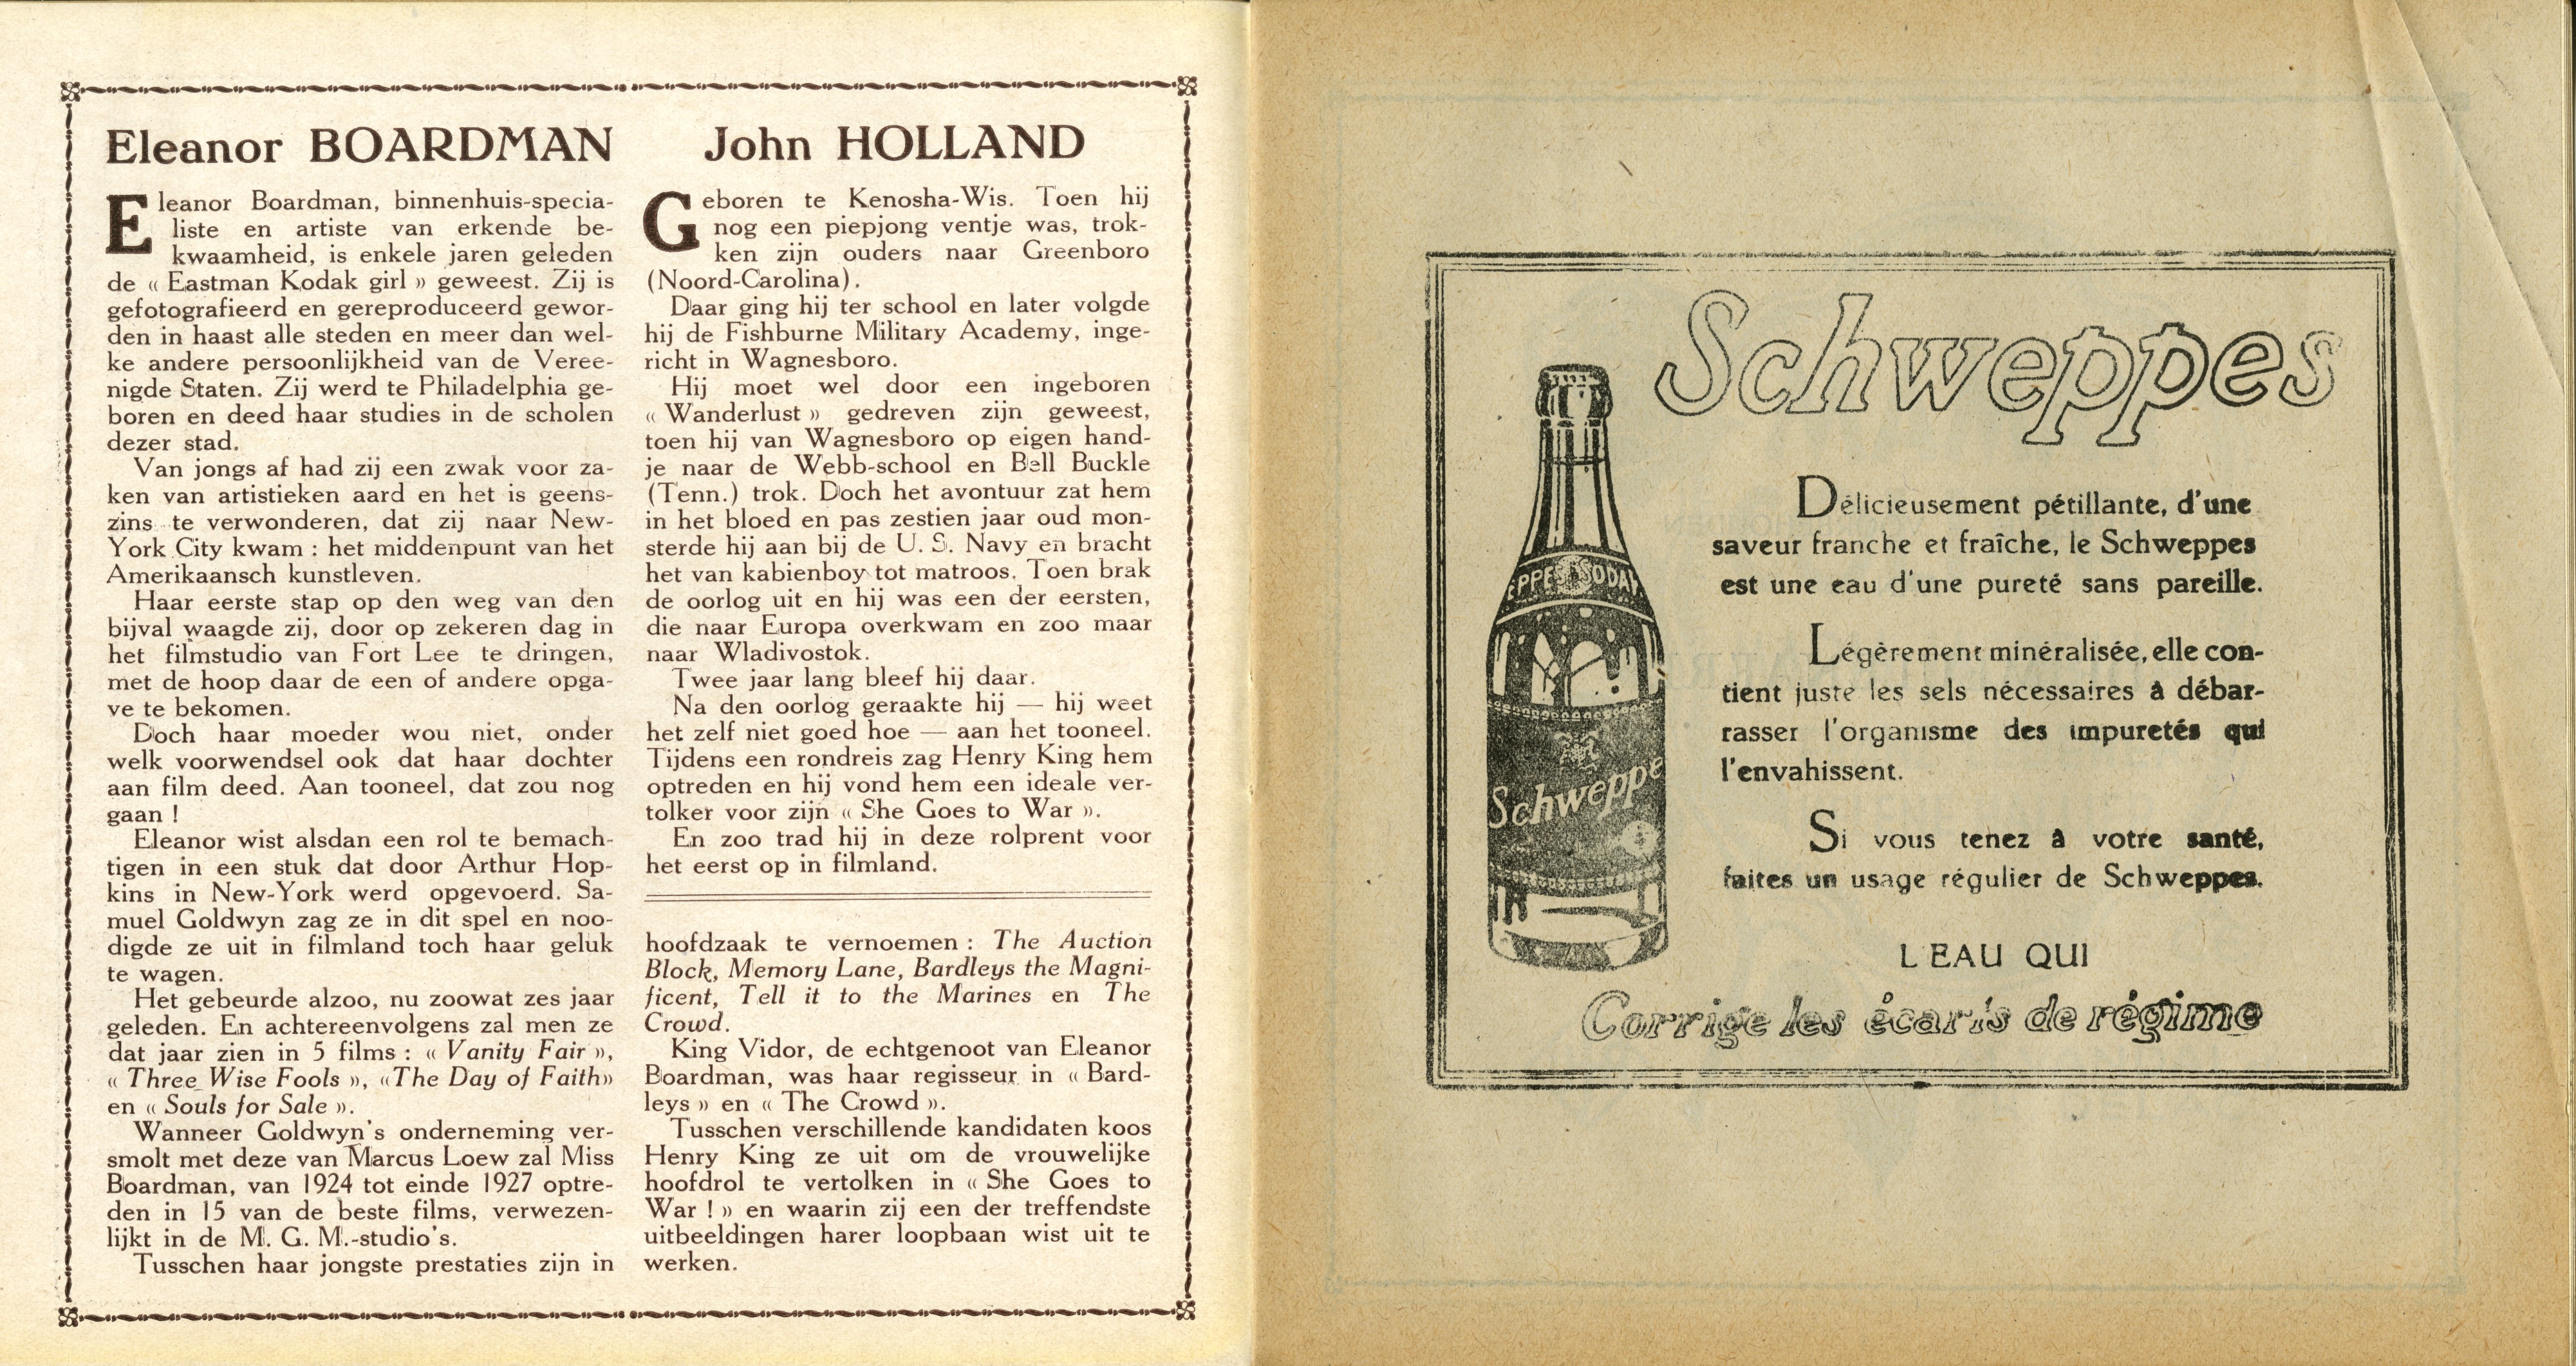 Eleanor BOARDMAN
Eleanor Boardman, binnenhuis-specia-
liste en artiste van erkende be-
kwaamheid, is enkele jaren geleden
de « Eastman Kodak girl » geweest. Zij is
gefotografieerd en gereproduceerd gewor-
den in haast alle steden en meer dan wel-
ke andere persoonlijkheid van de Veree-
nigde Staten. Zij werd te Philadelphia ge-
boren en deed haar studies in de scholen
dezer stad.
Van jongs af had zij een zwak voor za-
ken van artistieken aard en het is geens-
zins te verwonderen, dat zij naar New-
York City kwam : het middenpunt van het
Amerikaansch kunstleven.
Haar eerste stap op den weg van den
bijval waagde zij, door op zekeren dag in
het filmstudio van Fort Lee te dringen,
met de hoop daar de een of andere opga-
ve te bekomen.
Doch haar moeder wou niet, onder
welk voorwendsel ook dat haar dochter
aan film deed. Aan tooneel, dat zou nog
gaan !
Eleanor wist alsdan een rol te bemach-
tigen in een stuk dat door Arthur Hop-
kins in New-York werd opgevoerd. Sa-
muel Goldwyn zag ze in dit spel en noo-
digde ze uit in filmland toch haar geluk
te wagen.
Het gebeurde alzoo, nu zoowat zes jaar
geleden. En achtereenvolgens zal men ze
dat jaar zien in 5 films : « Vanity Fair »,
« Three Wise Fools », «The Day of Faith»
en « Souls for Sale ».
Wanneer Goldwyn's onderneming ver-
smolt met deze van Marcus Loew zal Miss
Boardman, van 1924 tot einde 1927 optre-
den in 15 van de beste films, verwezen-
lijkt in de M. G. M.-studio's.
Tusschen haar jongste prestaties zijn in
John HOLLAND
Geboren te Kenosha-Wis. Toen hij
nog een piepjong ventje was, trok-
ken zijn ouders naar Greenboro
(Noord-Carolina).
Daar ging hij ter school en later volgde
hij de Fishburne Military Academy, inge-
richt in Wagnesboro.
Hij moet wel door een ingeboren
« Wanderlust » gedreven zijn geweest,
toen hij van Wagnesboro op eigen hand-
je naar de Webb-school en Bell Buckle
(Tenn.) trok. Doch het avontuur zat hem
in het bloed en pas zestien jaar oud mon-
sterde hij aan bij de U. S. Navy en bracht
het van kabienboy tot matroos. Toen brak
de oorlog uit en hij was een der eersten,
die naar Europa overkwam en zoo maar
naar Wladivostok.
Twee jaar lang bleef hij daar.
Na den oorlog geraakte hij — hij weet
het zelf niet goed hoe — aan het tooneel.
Tijdens een rondreis zag Henry King hem
optreden en hij vond hem een ideale ver-
tolker voor zijn « She Goes to War ».
En zoo trad hij in deze rolprent voor
het eerst op in filmland.
hoofdzaak te vernoemen : The Auction
Block, Memory Lane, Bardleys the Magni-
ficent, Tell it to the Marines en The
Crowd.
King Vidor, de echtgenoot van Eleanor
Boardman, was haar regisseur in « Bard-
leys » en « The Crowd ».
Tusschen verschillende kandidaten koos
Henry King ze uit om de vrouwelijke
hoofdrol te vertolken in « She Goes to
War ! » en waarin zij een der treffendste
uitbeeldingen harer loopbaan wist uit te
werken.
Schweppes
Délicieusement pétillante, d'une
saveur franche et fraîche, le Schweppes
est une eau d'une pureté sans pareille.
Légèrement minéralisée, elle con-
tient juste les sels nécessaires à débar-
rasser l'organisme des impuretés qui
l'envahissent.
Si vous tenez à votre santé,
faites un usage régulier de Schweppes.
L'EAU QUI
Corrige les écarts de régime
EPPES SODA
Schweppe